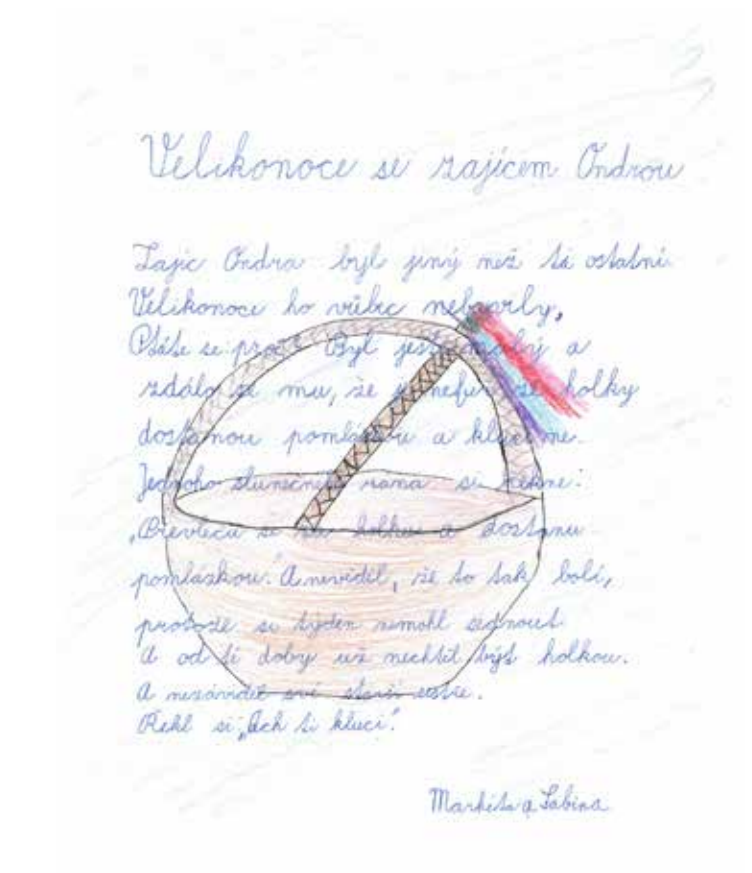 Velikonoce se zajícem Ondrou
Zajíc Ondra byl jiný než ti ostatní
Velikonoce ho vůbec nebavily,
Ptáte se proč? Byl ještě malý a
zdálo se mu, že je nefér, že holky
dostanou pomlázkou a kluci ne.
Jednoho slunečného rána si řekne:
„Převleču se za holku a dostanu
pomlázkou.“ A neviděl, že to tak bolí,
protože si týden nemohl sednout
A od tí doby už nechtěl být holkou.
A nezáviděl své starší sestře.
Řekl si „Ach ti kluci“.
Markéta a Sabina